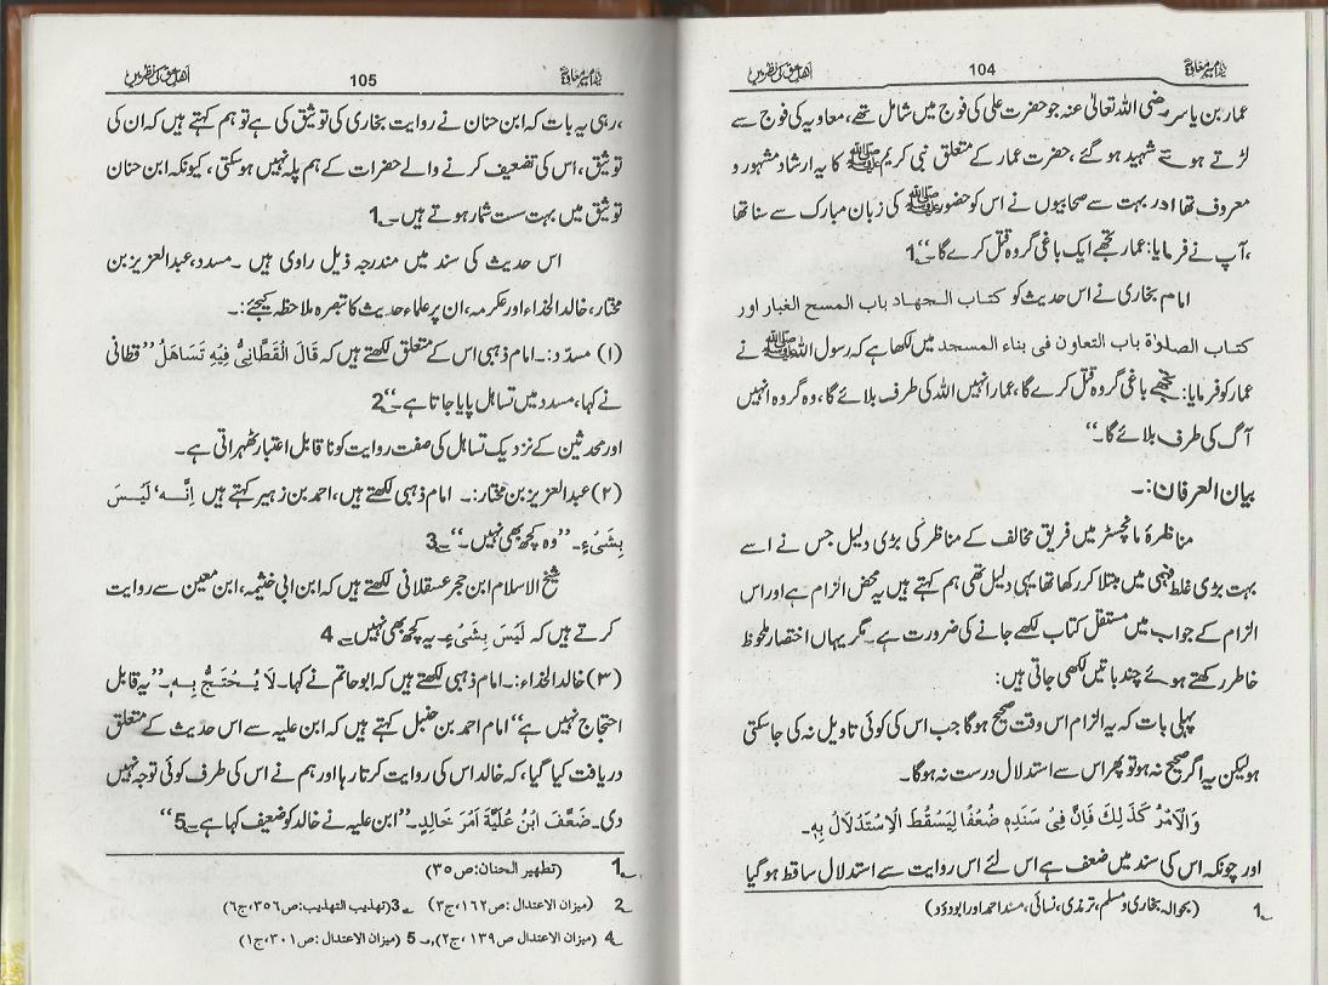 سیدنا امیر معاویہؓ 104 اھل حق کی نظر میں
عمار بن یاسر رضی اللہ تعالیٰ عنہ جو حضرت علی کی فوج میں شامل تھے، معاویہ کی فوج سے
لڑتے ہوئے شہید ہو گئے، حضرت عمار کے متعلق نبی کریم ﷺ کا یہ ارشاد مشہور و
معروف تھا اور بہت سے صحابیوں نے اس کو حضور ﷺ کی زبان مبارک سے سنا تھا
،آپ نے فرمایا: عمار تجھے ایک باغی گروہ قتل کرے گا۔“1
امام بخاری نے اس حدیث کو کتاب الجهاد باب المسح الغبار اور
کتاب الصلوٰة باب التعاون فی بناء المسجد میں لکھا ہے کہ رسول اللہ ﷺ نے
عمار کو فرمایا: تجھے باغی گروہ قتل کرے گا، عمار انہیں اللہ کی طرف بلائے گا، وہ گروہ انہیں
آگ کی طرف بلائے گا۔“
بیان العرفان:۔
مناظرۂ مانچسٹر میں فریق مخالف کے مناظر کی بڑی دلیل جس نے اسے
بہت بڑی غلط فہمی میں مبتلا کر رکھا تھا یہی دلیل تھی ہم کہتے ہیں یہ محض الزام ہے اور اس
الزام کے جواب میں مستقل کتاب لکھے جانے کی ضرورت ہے۔ مگر یہاں اختصار ملحوظ
خاطر رکھتے ہوئے چند باتیں لکھی جاتی ہیں:
پہلی بات کہ یہ الزام اس وقت صحیح ہوگا جب اس کی کوئی تاویل نہ کی جا سکتی
ہو لیکن یہ اگر صحیح نہ ہو تو پھر اس سے استدلال درست نہ ہوگا۔
وَالْاَمْرُ کَذٰلِكَ فَاِنَّ فِیْ سَنَدِہٖ ضُعْفًا لِیَسْقُطَ الْاِسْتِدْلَالُ بِہٖ۔
اور چونکہ اس کی سند میں ضعف ہے اس لئے اس روایت سے استدلال ساقط ہو گیا
1 (بحوالہ بخاری و مسلم، ترمذی، نسائی، مسند احمد اور ابوداؤد)
سیدنا امیر معاویہؓ 105 اھل حق کی نظر میں
،رہی یہ بات کہ ابن حنان نے روایت بخاری کی توثیق کی ہے تو ہم کہتے ہیں کہ ان کی
توثیق، اس کی تضعیف کرنے والے حضرات کے ہم پلہ نہیں ہو سکتی، کیونکہ ابن حنان
توثیق میں بہت سست شمار ہوتے ہیں۔1
اس حدیث کی سند میں مندرجہ ذیل راوی ہیں ۔ مسدد، عبدالعزیز بن
مختار، خالد الخذاء اور عکرمہ، ان پر علماء حدیث کا تبصرہ ملاحظہ کیجئے:۔
(۱) مسدّد:۔ امام ذہبی اس کے متعلق لکھتے ہیں کہ قَالَ الْقَطَّانِیُّ فِیْهِ تَسَاهَلُ ”قطانی
نے کہا، مسدد میں تساہل پایا جاتا ہے۔“2
اور محدثین کے نزدیک تساہل کی صفت روایت کو نا قابل اعتبار ٹھہراتی ہے۔
(۲) عبدالعزیز بن مختار:۔ امام ذہبی لکھتے ہیں، احمد بن زہیر کہتے ہیں اِنَّــهٗ لَیْـسَ
بِشَیْءٍ۔ ”وہ کچھ بھی نہیں۔“3
شیخ الاسلام ابن حجر عسقلانی لکھتے ہیں کہ ابن ابی خثیمہ، ابن معین سے روایت
کرتے ہیں کہ لَیْسَ بِشَیْءٍ۔ یہ کچھ بھی نہیں۔ 4
(۳) خالد الخذاء:۔ امام ذہبی لکھتے ہیں کہ ابو حاتم نے کہا۔ لَا یُـحْتَجُّ بِــہٖ۔”یہ قابل
احتجاج نہیں ہے“ امام احمد بن حنبل کہتے ہیں کہ ابن علیہ سے اس حدیث کے متعلق
دریافت کیا گیا، کہ خالد اس کی روایت کرتا رہا اور ہم نے اس کی طرف کوئی توجہ نہیں
دی۔ ضَعَّفَ ابْنُ عُلَیَّةَ اَمْرَ خَالِدٍ۔ ”ابن علیہ نے خالد کو ضعیف کہا ہے۔5“
1 (تطهیر الحنان: ص ۳۵)
2 (میزان الاعتدال: ص ۱۶۲، ج۳) 3 (تهذیب التهذیب: ص ۳۵۶، ج۶)
4 (میزان الاعتدال ص ۱۳۹، ج۲)، 5 (میزان الاعتدال: ص ۳۰۱، ج۱)